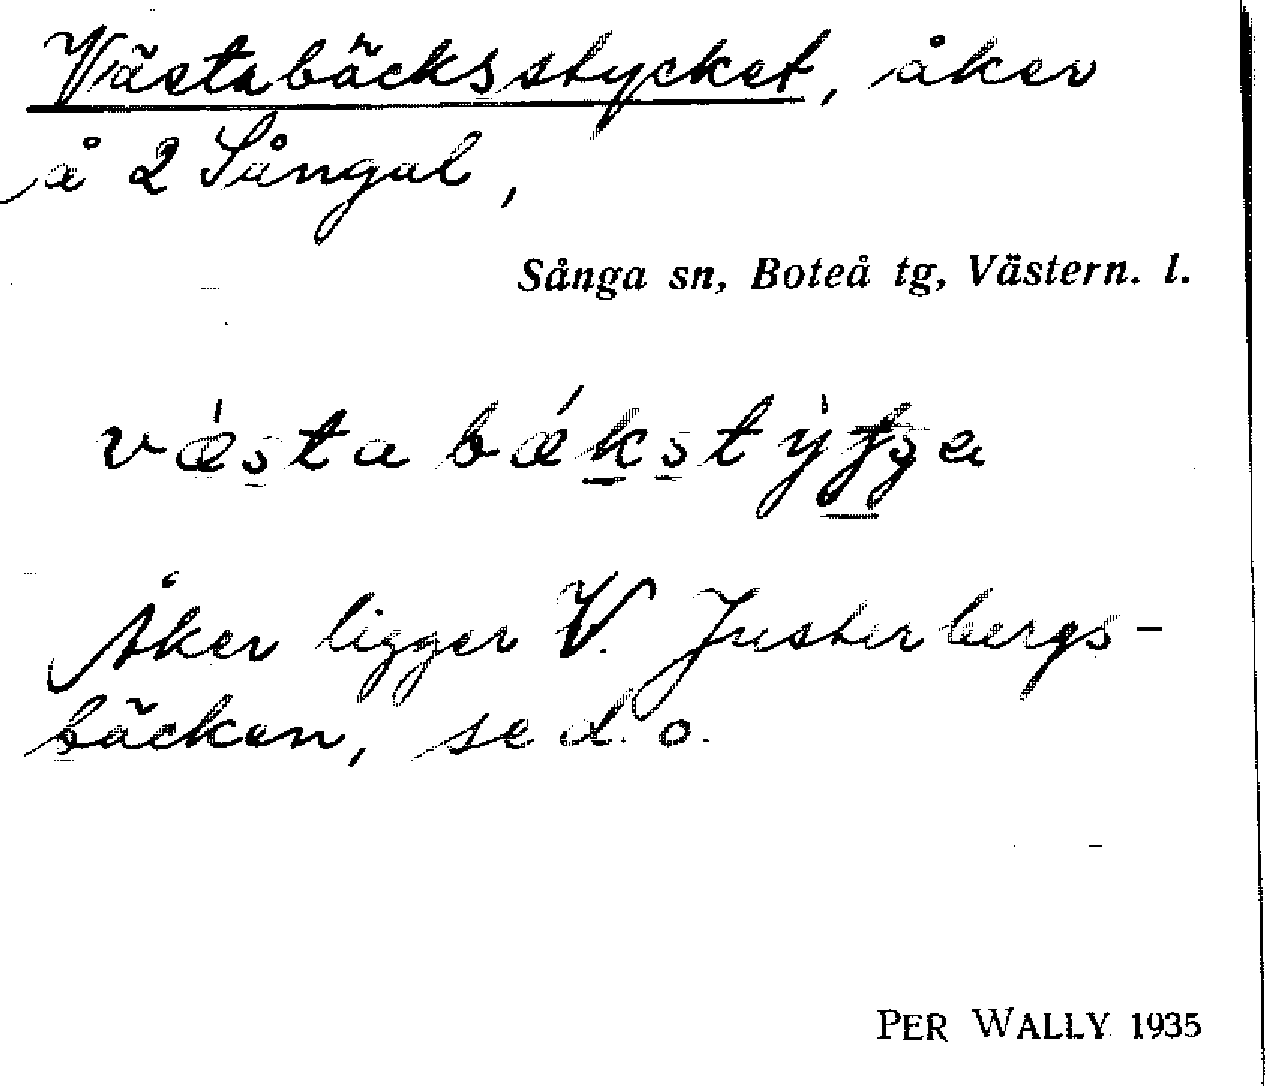 Västabäcksstycket, åker
å 2 Sångal,
Sånga sn, Boteå tg, Västern. l.
væ̀sta bǽkstỳ
Åker ligger V. Justerbergs-
bäcken, se d. o.
PER WALLY 1935